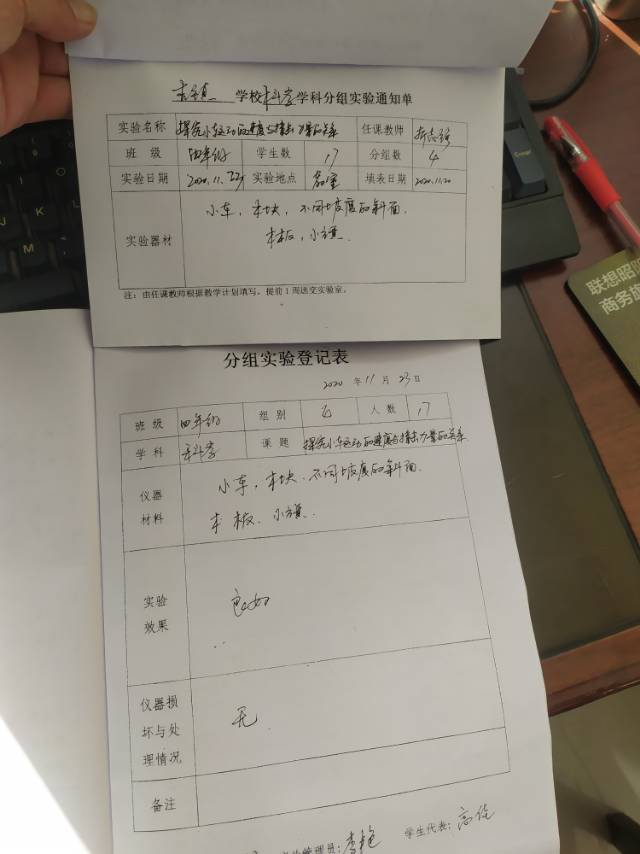 学校 科学 学科分组实验通知单
实验名称 探究小车运动的速度与撞击力量的关系 任课教师
班 级 四年级 学生数 17 分组数 4
实验日期 2020.11.23 实验地点 教室 填表日期 2020.11.20
实验器材 小车，木块，不同坡度的斜面，
木板，小旗.
注：由任课教师根据教学计划填写，提前1周送交实验室。
分组实验登记表
2020 年 11 月 23 日
班 级 四年级 组 别 人 数 17
学 科 科学 课 题 探究小车运动的速度与撞击力量的关系
仪器材料 小车，木块、不同坡度的斜面.
木板、小旗.
实验效果 良好
仪器损坏与处理情况 无
备注
管理员：李艳 学生代表：高佳
联想昭阳
商务旅